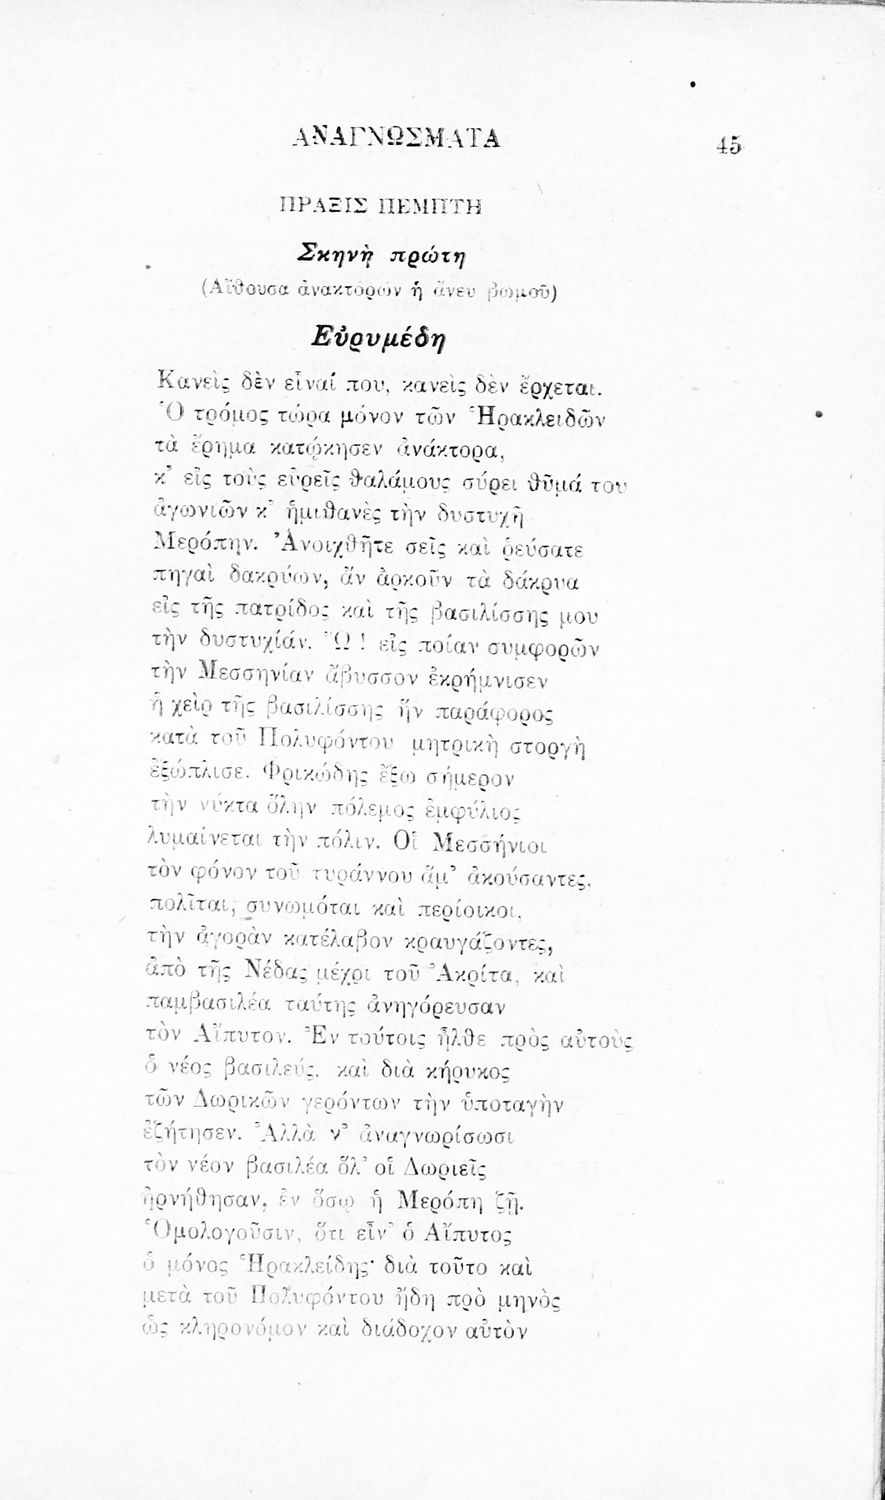 ΑΝΑΓΝΩΣΜΑΤΑ 45
ΠΡΑΞΙΣ ΠΕΜΠΤΗ
Σκηνὴ πρώτη
(Αἴθουσα ἀνακτόρων ἡ ἄνευ βωμοῦ)
Εὐρυμέδη
Κανεὶς δὲν εἶναί που, κανεὶς δὲν ἔρχεται.
Ὁ τρόμος τώρα μόνον τῶν Ἡρακλειδῶν
τὰ ἔρημα κατῴκησεν ἀνάκτορα,
κ’ εἰς τοὺς εὐρεῖς θαλάμους σύρει θῦμά του
ἀγωνιῶν κ’ ἡμιθανὲς τὴν δυστυχῆ
Μερόπην. Ἀνοιχθῆτε σεῖς καὶ ῥεύσατε
πηγαὶ δακρύων, ἄν ἀρκοῦν τὰ δάκρυα
εἰς τῆς πατρίδος καὶ τῆς βασιλίσσης μου
τὴν δυστυχίάν. Ὢ ! εἰς ποίαν συμφορῶν
τὴν Μεσσηνίαν ἄβυσσον ἐκρήμνισεν
ἡ χεὶρ τῆς βασιλίσσης ἥν παράφορος
κατὰ τοῦ Πολυφόντου μητρικὴ στοργὴ
ἐξώπλισε. Φρικώδης ἔξω σήμερον
τὴν νύκτα ὅλην πόλεμος ἐμφύλιος
λυμαίνεται τὴν πόλιν. Οἱ Μεσσήνιοι
τὸν φόνον τοῦ τυράννου ἅμ’ ἀκούσαντες,
πολῖται, συνωμόται καὶ περίοικοι,
τὴν ἀγορὰν κατέλαβον κραυγάζοντες,
ἀπὸ τῆς Νέδας μέχρι τοῦ Ἀκρίτα, καὶ
παμβασιλέα ταύτης ἀνηγόρευσαν
τὸν Αἴπυτον. Ἐν τούτοις ἦλθε πρὸς αὐτοὺς
ὁ νέος βασιλεύς, καὶ διὰ κήρυκος
τῶν Δωρικῶν γερόντων τὴν ὑποταγὴν
ἐζήτησεν. Ἀλλὰ ν’ ἀναγνωρίσωσι
τὸν νέον βασιλέα ὅλ’ οἱ Δωριεῖς
ἠρνήθησαν, ἐν ὅσῳ ἡ Μερόπη ζῇ.
Ὁμολογοῦσιν, ὅτι εἶν’ ὁ Αἴπυτος
ὁ μόνος Ἡρακλείδης· διὰ τοῦτο καὶ
μετὰ τοῦ Πολυφόντου ἤδη πρὸ μηνὸς
ὡς κληρονόμον καὶ διάδοχον αὐτὸν